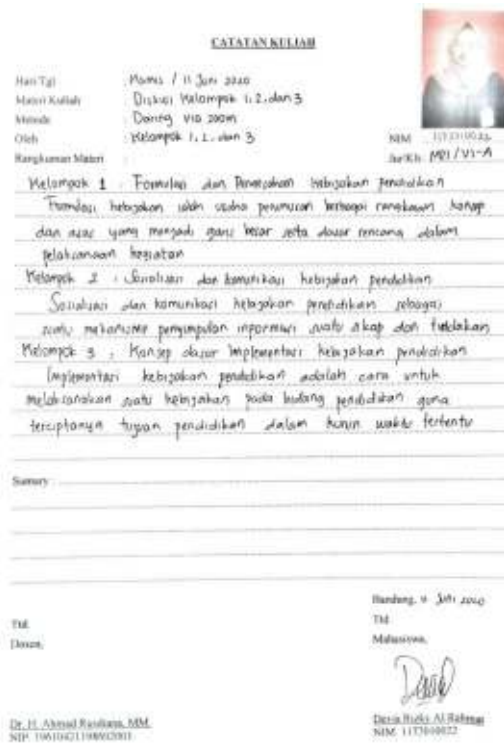 CATATAN KULIAH
Hari/Tgl : Kamis / 11 Juni 2020
Materi Kuliah : Diskusi Kelompok 1, 2, dan 3
Metode : Daring via zoom
Oleh : Kelompok 1, 2, dan 3
NIM
Jur/Kls MPI / VI-A
Rangkuman Materi :
Kelompok 1 : Formulasi dan kebijakan pendidikan
Formulasi kebijakan ialah usaha perumusan berbagai rangkaian konsep
dan asas yang menjadi garis besar serta dasar rencana dalam
pelaksanaan kegiatan
Kelompok 2 : Sosialisasi dan komunikasi kebijakan pendidikan
Sosialisasi dan komunikasi kebijakan pendidikan sebagai
suatu mekanisme pengumpulan informasi suatu sikap dan tindakan
Kelompok 3 : Konsep dasar Implementasi kebijakan pendidikan
Implementasi kebijakan pendidikan adalah cara untuk
melaksanakan suatu kebijakan pada bidang pendidikan guna
terciptanya tujuan pendidikan dalam kurun waktu tertentu
Sumary :
Bandung, 11 Juni 2020
Ttd.
Ttd
Dosen,
Mahasiswa,
Dr. H. Ahmad Rusdiana, MM.
NIP.
Al Rahman
NIM.